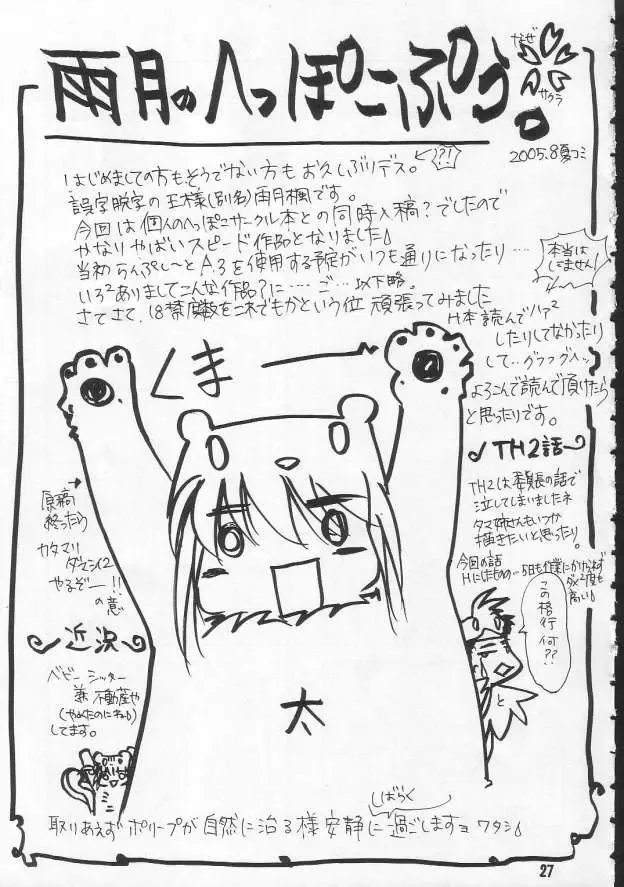 雨月のへっぽこぷぅ。
なぜ
サクラ
2005.8夏コミ
はじめましての方もそうでない方もお久しぶりデス。
(?!)
誤字脱字の王様(別名)雨月楓です。
今回は個人のへっぽこサークル本との同時入稿?でしたので
かなりやばいスピード作品となりました
を使用する予定がいつも通りになったり‥‥
本当は
してません!
いろ²ありましてこんな作品?に‥‥ご‥以下略。
さてさて、18禁度数をこれでもかという位 頑張ってみました
H本読んでハァ²
したりしてなかったり
して‥グフフグハッ
よろこんで読んで頂けたら
と思ったりです。
くまーー
TH2話
TH2は委員長の話で
泣してしまいましたネ
タマ姉さんもいつか
描きたいと思ったり。
今回の話
この格行何??
と
原稿
終ったら
カタマリ
ダマシイ2
やるぞー!!
の意
近況
ベビーシッター
兼 不動産や
(やめたのにねぇ)
してます。
ミニ
太
しばらく
取りあえずポリープが自然に治る様安静に過ごしますョ ワタシ
27